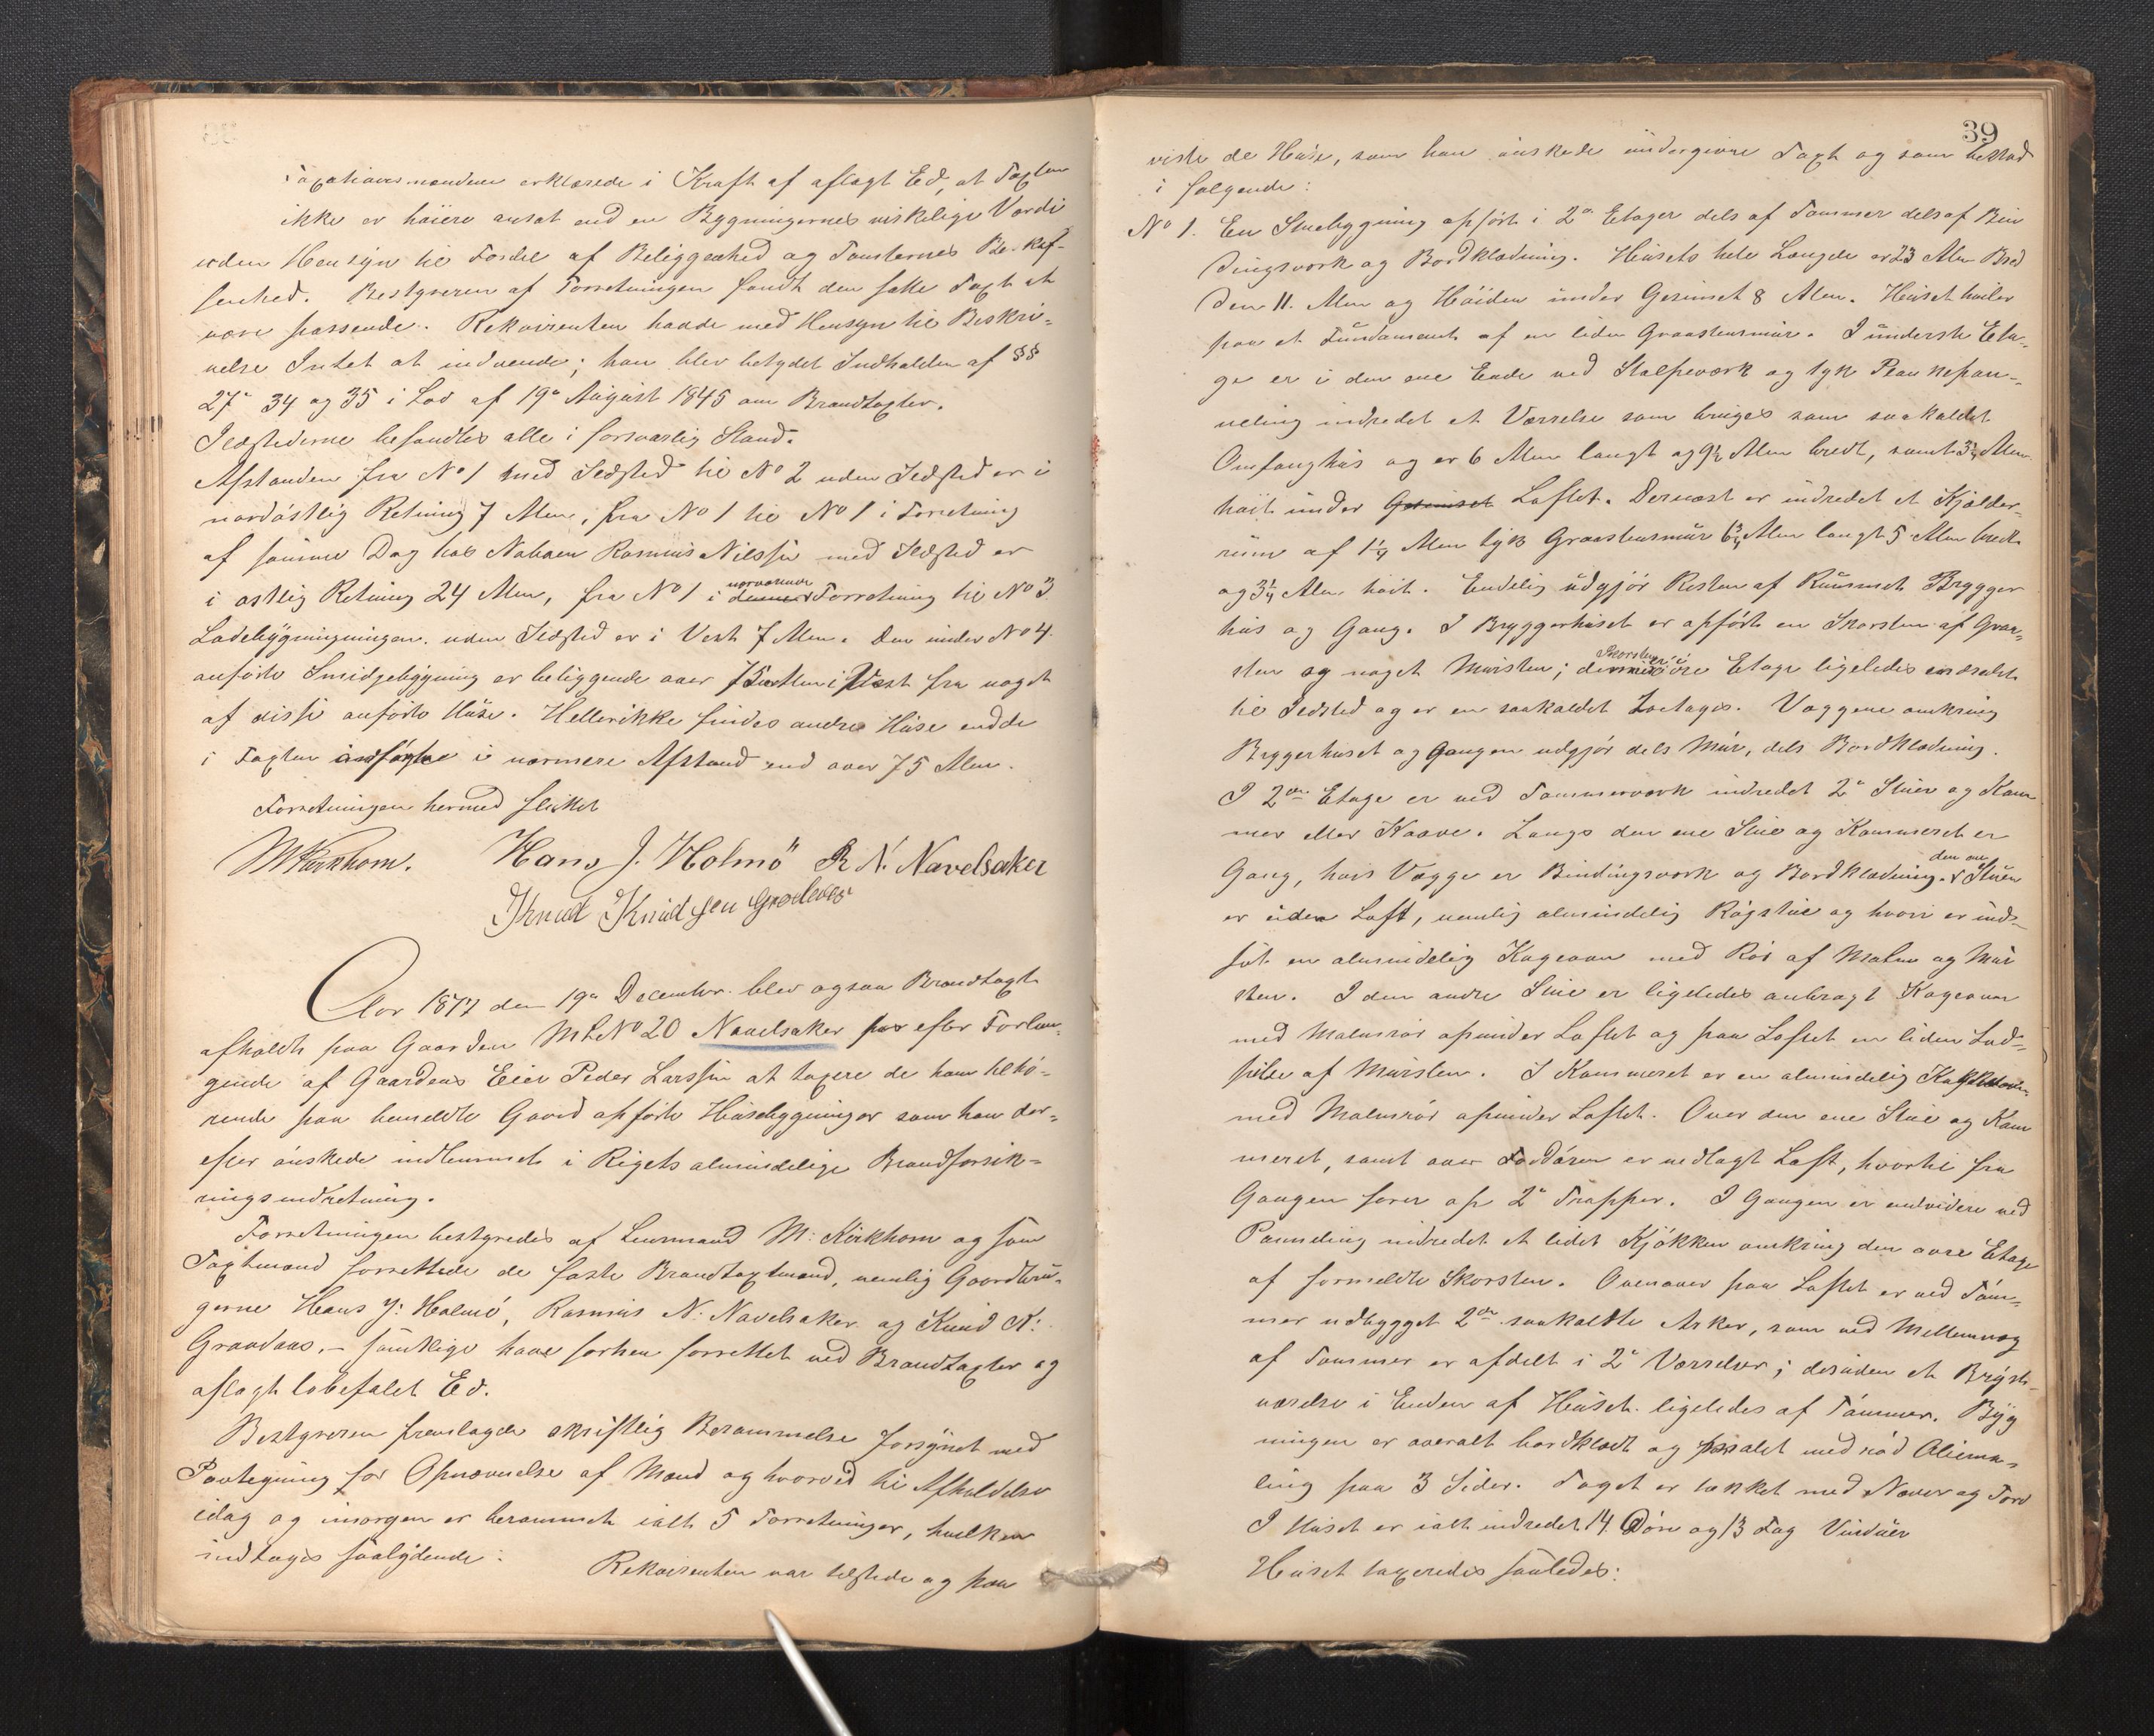 Taxationsmændene erklærede i Kraft af aflagt Ed, at Taxten
ikke er høiere ansat end en Bygningernes virkelige Værdi
uden Hensyn til Fordel af Beliggenhed og Tomternes Beskaf-
fenhed. Bestyreren af Forretningen fandt den satte Taxt at
være passende. Rekvirenten havde med Hensyn til Beskri-
velse Intet at indvende; han blev betydet Indholdet af §§
27, 34 og 35 i Lov af 19de August 1845 om Brandtaxter.
Ildstederne befandtes alle i forsvarlig Stand.
Afstanden fra No 1 med Ildsted til No 2 uden Ildsted er i
nordøstlig Retning 7 Alen, fra No 1 til No 1 i Forretning
af samme Dag hos Naboen Rasmus Nilssen med Ildsted er
i østlig Retning 24 Alen, fra No 1 i nærværende Forretning til No 3
Ladebygningningen uden Ildsted er i Vest 7 Alen. Den under No 4.
anførte Smidjebygning er beliggende over 75 Alen i Vest fra noget
af disse anførte Huse. Hellerikke findes andre Huse end de
i Taxten indførte i nærmere Afstand end over 75 Alen.
Forretningen hermed sluttet
M Kirkhorn. Hans J. Holmö R. N. Navelsaker
Knud Knudsen
Aar 1877 den 19de December blev ogsaa Brandtaxt
afholdt paa Gaarden Mt No 20 Navelsaker efter Forlan-
gende af Gaardens Eier Peder Larssen at taxere de ham tilhø-
rende paa bemeldte Gaard opførte Husebygninger som han der-
efter ønskede indlemmet i Rigets almindelige Brandforsik-
ringsindretning.
Forretningen bestyredes af Lensmand M. Kirkhorn og som
Taxtmænd forrettede de faste Brandtaxtmænd, nemlig Gaardbru-
gerne Hans J: Holmö, Rasmus N: Navelsaker og Knud K:
Graadaas, – samtlige have forhen forrettet ved Brandtaxter og
aflagt lovbefalet Ed.
Bestyreren fremlagde skriftlig Berammelse forsynet med
Paategning for Opnævnelse af Mænd og hvorved til Afholdelse
idag og imorgen er berammet ialt 5 Forretninger, hvilken
indtages saalydende:
Rekvirenten var tilstede og paa
39
viste de Huse, som han ønskede undergivne Taxt og som bestod
i følgende:
No 1. En Stuebygning opført i 2de Etager dels af Tømmer dels af Bin
dingsværk og Bordklædning. Husets hele Længde er 23 Alen Bred
den 11. Alen og Høiden under Gesimset 8 Alen. Huset hviler
paa et Fundament af en liden Graastensmur. I underste Eta-
ge er i den ene Ende ved Stolpeværk og tyk Plankepan-
neling indredet et Værrelse som bruges som saakaldet
Omfanghus og er 6 Alen langt og 9½ Alen bredt, samt 3¼ Alen
høit under Gesimset Loftet. Dernæst er indredet et Kjælder-
rum af 1¼ Alen tyk Graastensmur 6¾ Alen langt 5 Alen bredt
og 3¼ Alen høit. Endelig udgjør Resten af Rummet Brygger
hus og Gang. I Bryggerhuset er opført en Skorsten af Graa-
sten og noget Mursten; Skorsten i øvre Etage ligeledes
til Ildsted og er en saakaldet Toetages. Væggene omkring
Bryggerhuset og Gangen udgjør dels Mur, dels Bordklædning.
I 2den Etage er ved Tømmerværk indredet 2de Stuer og Kam
mer eller Kaave. Langs den ene Stue og Kammeret er
Gang, hvis Vægge er Bindingsværk og Bordklædning. den ene Stuen
er uden Loft, nemlig almindelig Røgstue og hvori er ind-
sat en almindelig Kogeovn med Rør af Malm og Mur
sten. I den andre Stue er ligeledes anbragt Kogeovn
med Malmrør opunder Loftet og paa Loftet en liden Lud-
pibe af Mursten. I Kammeret er en almindelig
med Malmrør opunder Loftet. Over den ene Stue og Kam
meret, samt over Fordøren er nedlagt Loft, hvortil fra
Gangen fører op 2de Trapper. I Gangen er endvidere ved
Panneling indredet et lidet Kjøkken omkring den øvre Etage
af formeldte Skorsten. Ovenover paa Loftet er ved Tøm-
mer udbygget 2de saakaldte Arker, som ved Mellemvæg
af Tømmer er afdelt i 2de Værrelser; desuden et Bryst-
værelse i Enden af Huset ligeledes af Tømmer. Byg
ningen er overalt bordklædt og malet med rød Oliema-
ling paa 3 Sider. Taget er tækket med Næver og Torv
I Huset er ialt indredet 14 Døre og 13 Fag Vinduer
Huset taxeredes saaledes: